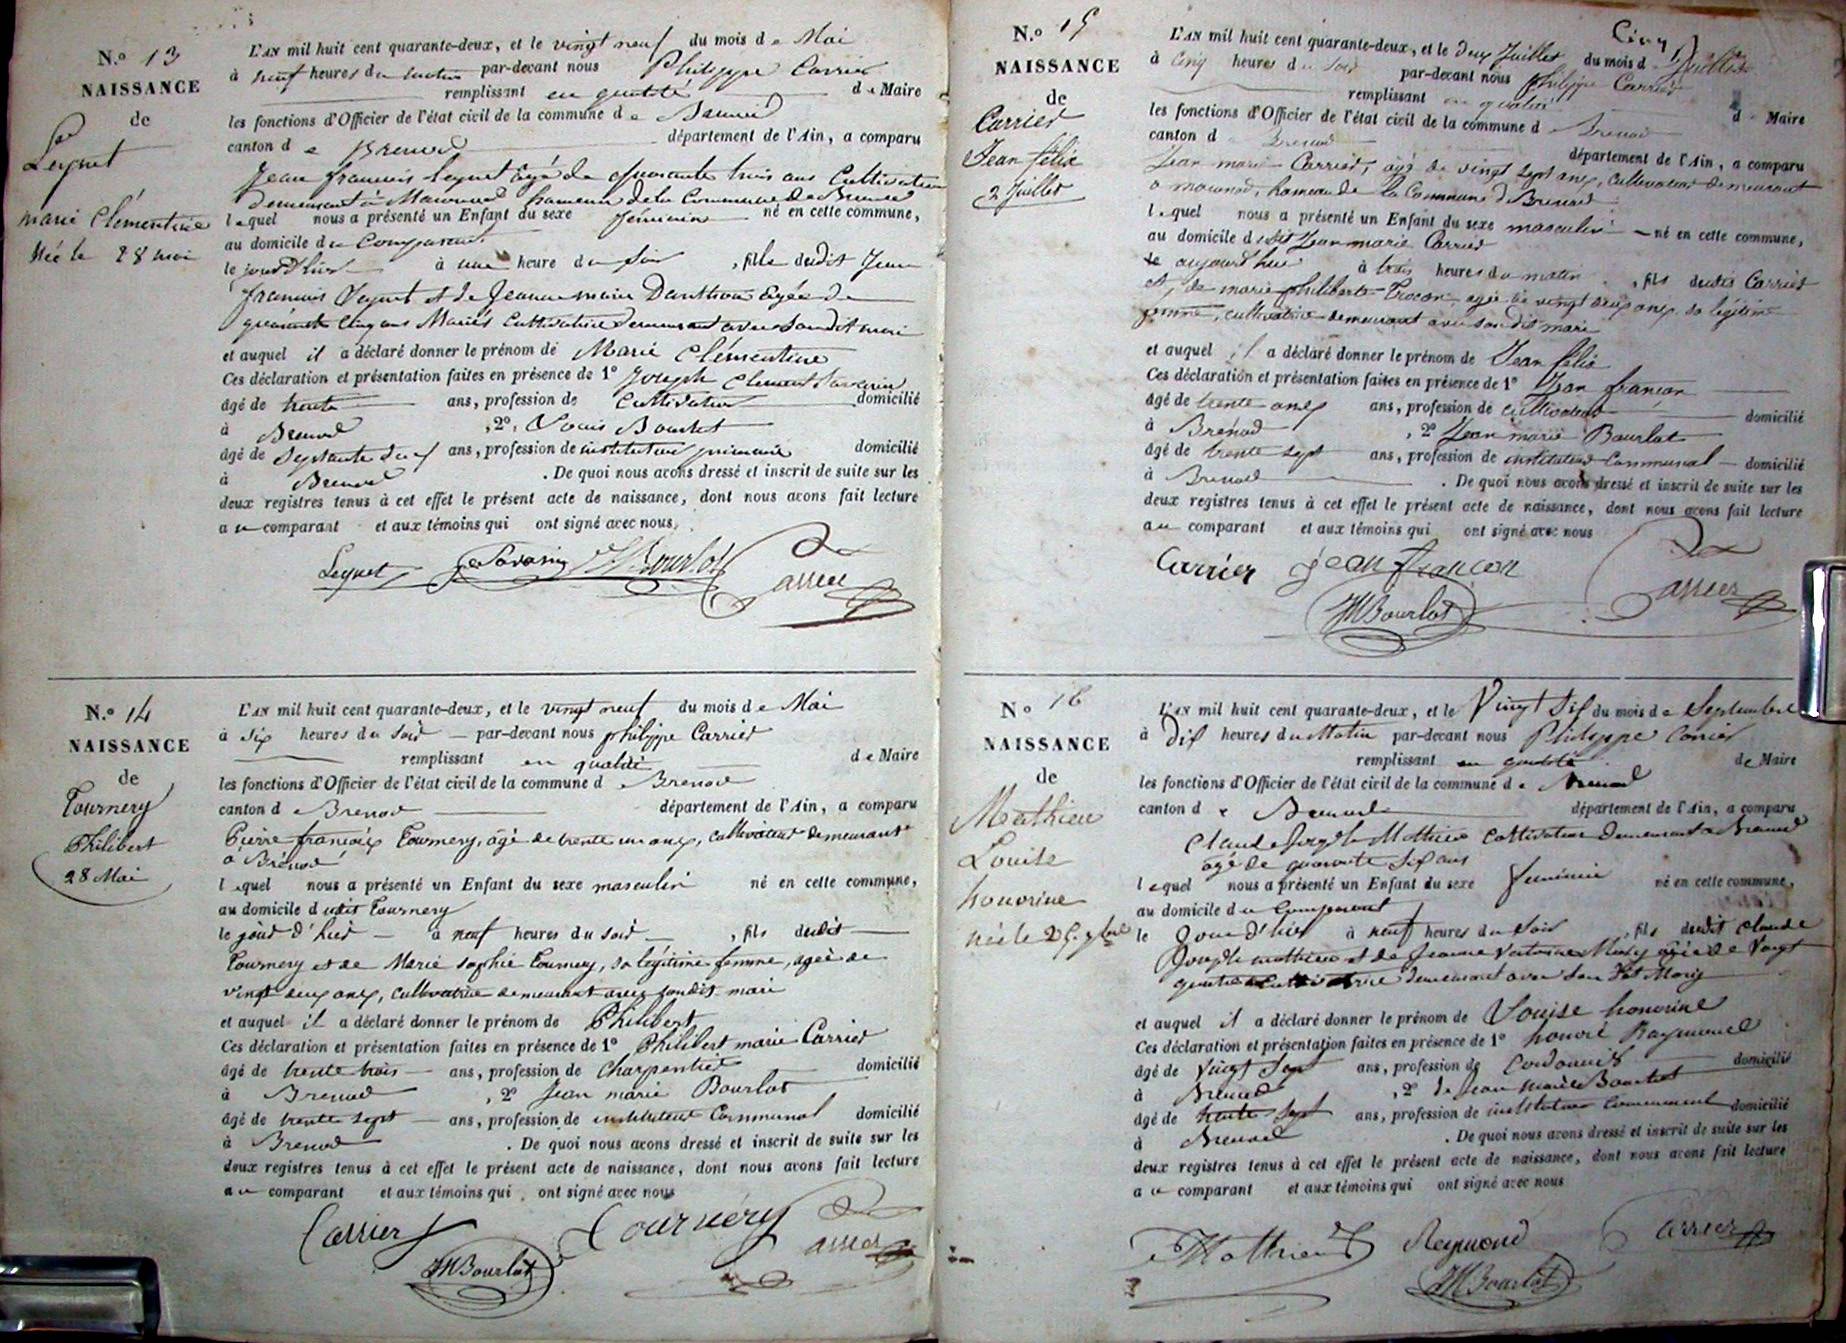 N.o 13
NAISSANCE
de
Leynet
marie Clémentine
Née le 28 mai
L'AN mil huit cent quarante-deux, et le vingt neuf du mois de Mai
à neuf heures du matin par-devant nous Philippe Carrier
remplissant en qualité de Maire
les fonctions d'Officier de l'état civil de la commune de Brenod
canton de Brenod département de l'Ain, a comparu
Jean francois Leynet âgé de quarante trois ans Cultivateur
demeurant à Macconod hameau de la Commune de Brenod
lequel nous a présenté un Enfant du sexe feminin né en cette commune,
au domicile du Comparant
le jour d'hier à une heure du soir , fille dudit Jean
francois Leynet et de Jeanne marie Agée de
quarante cinq ans Mariés Cultivatrice demeurant avec sondit mari
et auquel il a déclaré donner le prénom de Marie Clémentine
Ces déclaration et présentation faites en présence de 1o Joseph Clement Savarin
âgé de trente ans, profession de Cultivateur domicilié
à Brenod , 2o,
âgé de ans, profession de instituteur primaire domicilié
à Brenod . De quoi nous avons dressé et inscrit de suite sur les
deux registres tenus à cet effet le présent acte de naissance, dont nous avons fait lecture
au comparant et aux témoins qui ont signé avec nous.
Leynet Savarin JMBourlot Carrier
N.o 14
NAISSANCE
de
Tournery
Philibert
28 Mai
L'AN mil huit cent quarante-deux, et le vingt neuf du mois de Mai
à six heures du soir par-devant nous philippe Carrier
remplissant en qualité de Maire
les fonctions d'Officier de l'état civil de la commune d Brenod
canton d Brenod département de l'Ain, a comparu
Pierre françois Tournery, âgé de trente un ans, cultivateur demeurant
a Brénod
lequel nous a présenté un Enfant du sexe masculin né en cette commune,
au domicile dudit Tournery
le jour d'hier à neuf heures du soir , fils dudit
Tournery et de Marie sophie Tournery, sa légitime femme, agée de
vingt deux ans, cultivatrice demeurant avec sondit mari
et auquel il a déclaré donner le prénom de Philibert
Ces déclaration et présentation faites en présence de 1o Philibert marie Carrier
âgé de trente trois ans, profession de Charpentier domicilié
à Brenod , 2o Jean marie Bourlot
âgé de trente sept ans, profession de instituteur Communal domicilié
à Brenod . De quoi nous avons dressé et inscrit de suite sur les
deux registres tenus à cet effet le présent acte de naissance, dont nous avons fait lecture
au comparant et aux témoins qui ont signé avec nous
Carrier Tournery Carrier
JMBourlot
N.o 15
NAISSANCE
de
Carrier
Jean félix
2 Juillet
Cinq
L'AN mil huit cent quarante-deux, et le deux Juillet du mois d Juillet
à cinq heures du soir par-devant nous philippe Carrier
remplissant en qualité d Maire
les fonctions d'Officier de l'état civil de la commune d Brenod
canton d Brenod département de l'Ain, a comparu
Jean marie Carrier, âgé de vingt sept ans, cultivateur demeurant
a macconod, hameau de la Commune d Brenod
lequel nous a présenté un Enfant du sexe masculin né en cette commune,
au domicile dudit Jean marie Carrier
le aujourd'hui à trois heures du matin , fils dudit Carrier
et de marie philiberte agée de vingt deux ans, sa légitime
femme, cultivatrice demeurant avec sondit mari
et auquel il a déclaré donner le prénom de Jean félix
Ces déclaration et présentation faites en présence de 1o Jean françon
âgé de trente ans ans, profession de cultivateur domicilié
à Brénod , 2o Jean marie Bourlot
âgé de trente sept ans, profession de instituteur Communal domicilié
à Brenod . De quoi nous avons dressé et inscrit de suite sur les
deux registres tenus à cet effet le présent acte de naissance, dont nous avons fait lecture
au comparant et aux témoins qui ont signé avec nous
Carrier Jean françon Carrier
JMBourlot
No 16
NAISSANCE
de
Mathieu
Louise
honorine
née le 25 7bre
L'AN mil huit cent quarante-deux, et le Vingt Six du mois de Septembre
à Dix heures du Matin par-devant nous Philippe Carrier
remplissant en qualité de Maire
les fonctions d'Officier de l'état civil de la commune de Brenod
canton de Brenod département de l'Ain, a comparu
Claude Joseph Mathieu cultivateur demeurant a Brenod
âgé de quarante Six ans
lequel nous a présenté un Enfant du sexe feminin né en cette commune,
au domicile du Comparant
le Jour d'hier à neuf heures du soir , fils dudit claude
Joseph mathieu et de Jeanne agée de Vingt
quatre cultivatrice demeurant avec son dit Mary
et auquel il a déclaré donner le prénom de Louise honorine
Ces déclaration et présentation faites en présence de 1o honoré Raymond
âgé de Vingt Sept ans, profession de Cordonnier domicilié
à Brenod , 2o Jean marie Bourlot
âgé de trente sept ans, profession de instituteur Communal domicilié
à Brenod . De quoi nous avons dressé et inscrit de suite sur les
deux registres tenus à cet effet le présent acte de naissance, dont nous avons fait lecture
au comparant et aux témoins qui ont signé avec nous
Mathieu Reymond Carrier
JMBourlot